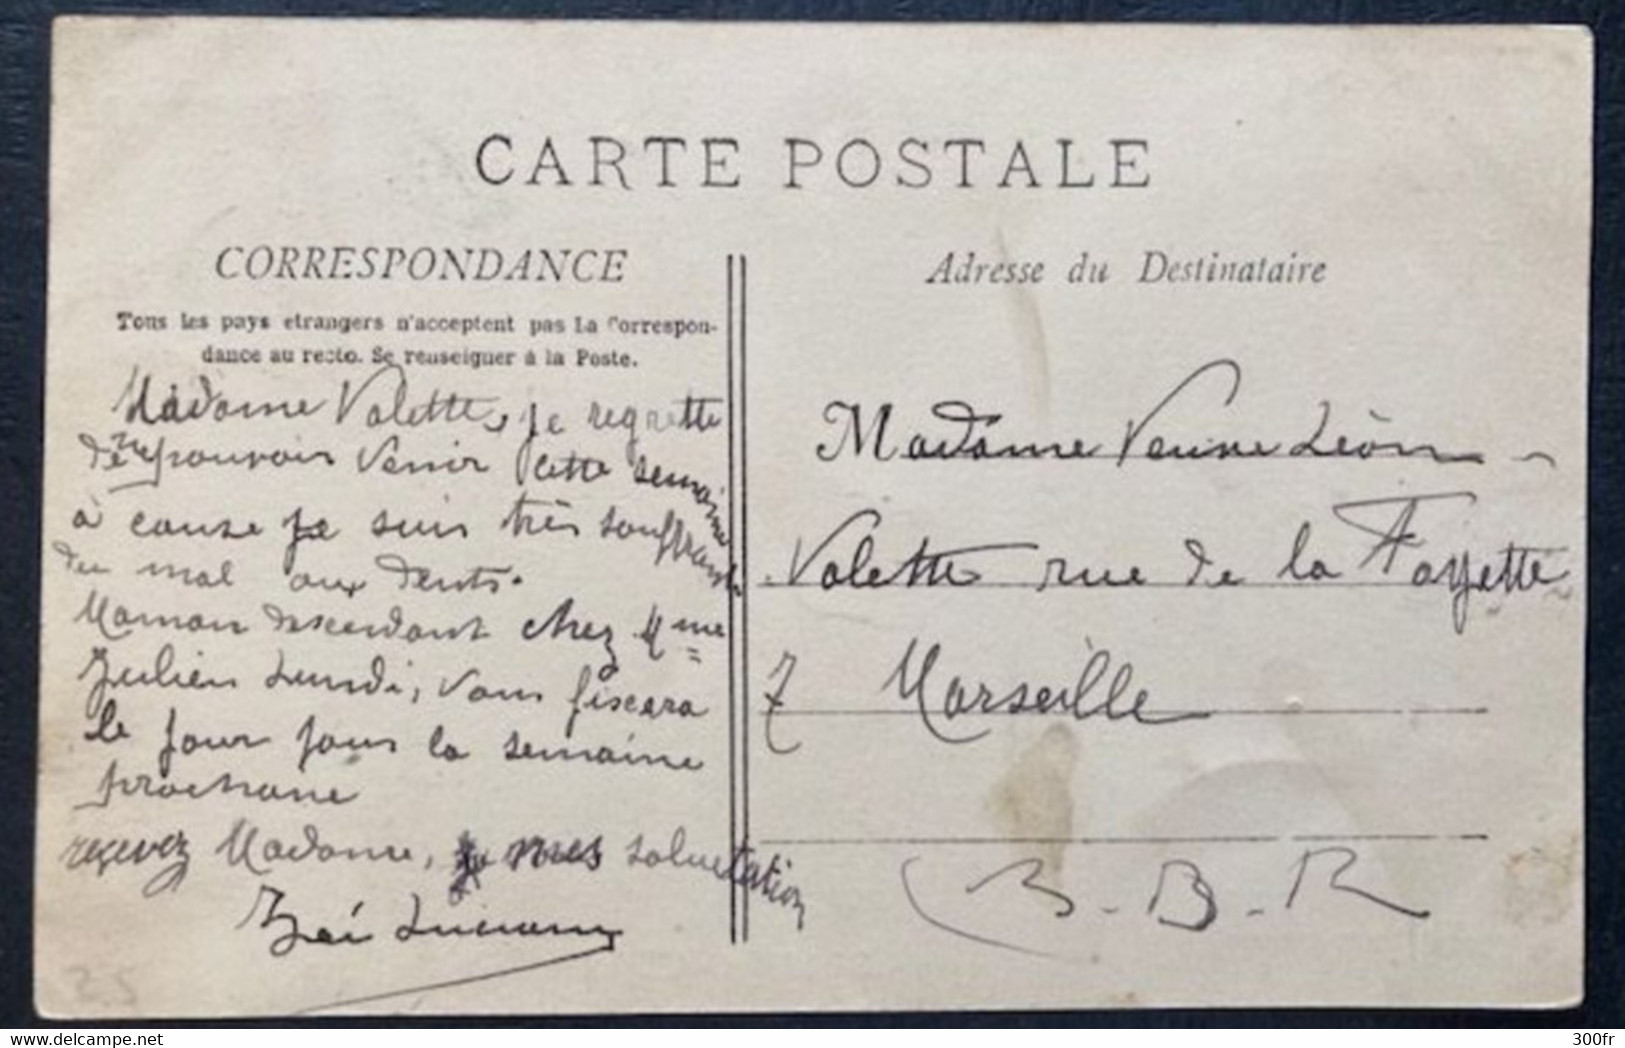 CARTE POSTALE
CORRESPONDANCE
Tous les pays etrangers n'acceptent pas la Correspon-
dance au recto. Se renseigner à la Poste.
Madame Valette, je regrette
de ne pouvoir venir cette semaine
à cause je suis très souffrante
du mal aux dents.
Maman descendant chez Mme
Julien Lundi, vous fiscera
le jour pour la semaine
prochaine
reçevez Madame, mes saluetation
25
Adresse du Destinataire
Madame Veuve Léon
Valette rue de la Fayette
7 Marseille
B.-B.-R
www.delcampe.net
300fr